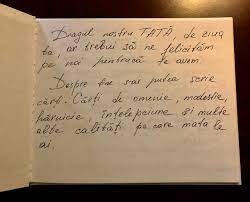 Dragul nostru TATĂ, de ziua
ta, ar trebui să ne felicităm
pe noi pentrucă te avem.
Despre tine s-ar putea scrie
cărți. Cărți de omenie, modestie,
hărnicie, înțelepciune și multe
alte calități pe care mata le
ai.